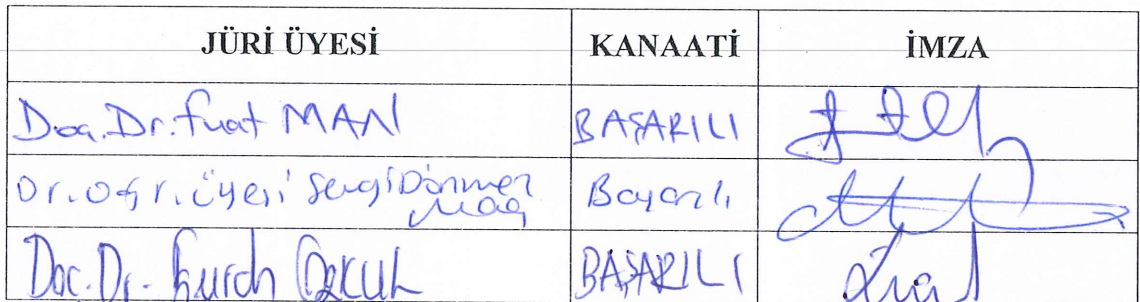 JÜRİ ÜYESİ KANAATİ İMZA
Doç.Dr. Fuat MAN BAŞARILI
Dr. Öğr. Üyesi Sevgi Dönmez Başarılı
Maç
Doc. Dr. BAŞARILI